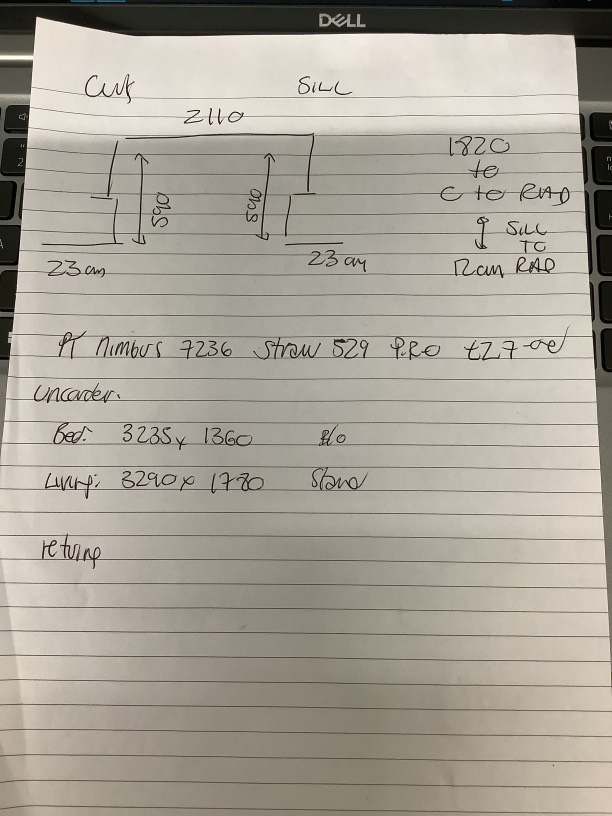 DELL
SILL
2110
1820
to
C to RAD
590
590
SILL
TO
12cm RAD
23 cm
23 cm
PT Nimbus 7236 Straw 529 P.RO £27-
Bed: 3235 x 1360
Living: 3290 x 1780 Stand